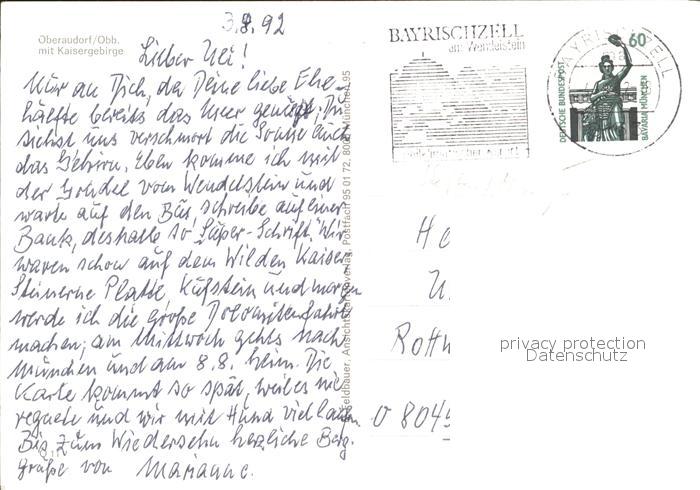 3.8.92
Oberaudorf/Obb.
mit Kaisergebirge
Lieber Uli!
Nur an Dich, da Deine liebe Ehe-
hälfte bereits das Meer genießt, Du
siehst uns verschmort die Sonne auch
das Gehirn. Eben komme ich mit
der Gondel vom Wendelstein und
warte auf den Bus, schreibe auf einer
Bank, deshalb so "Super-Schrift". Wir
waren schon auf dem Wilden Kaiser
Steinerne Platte, Kufstein und morgen
werde ich die große Dolomitenfahrt
machen; am Mittwoch gehts nach
München und am 8.8. heim. Die
Karte kommt so spät, weil es nie
regnete und wir mit Hund viel laufen.
Bis zum Wiedersehn herzliche Berg-
grüße von Marianne.
Ansichtskartenverlag, Postfach 95 01 72, 8000 München 95
BAYRISCHZELL
am Wendelstein
BAYRISCHZELL
60
DEUTSCHE BUNDESPOST
BAVARIA MÜNCHEN
Rott
O 804
privacy protection
Datenschutz